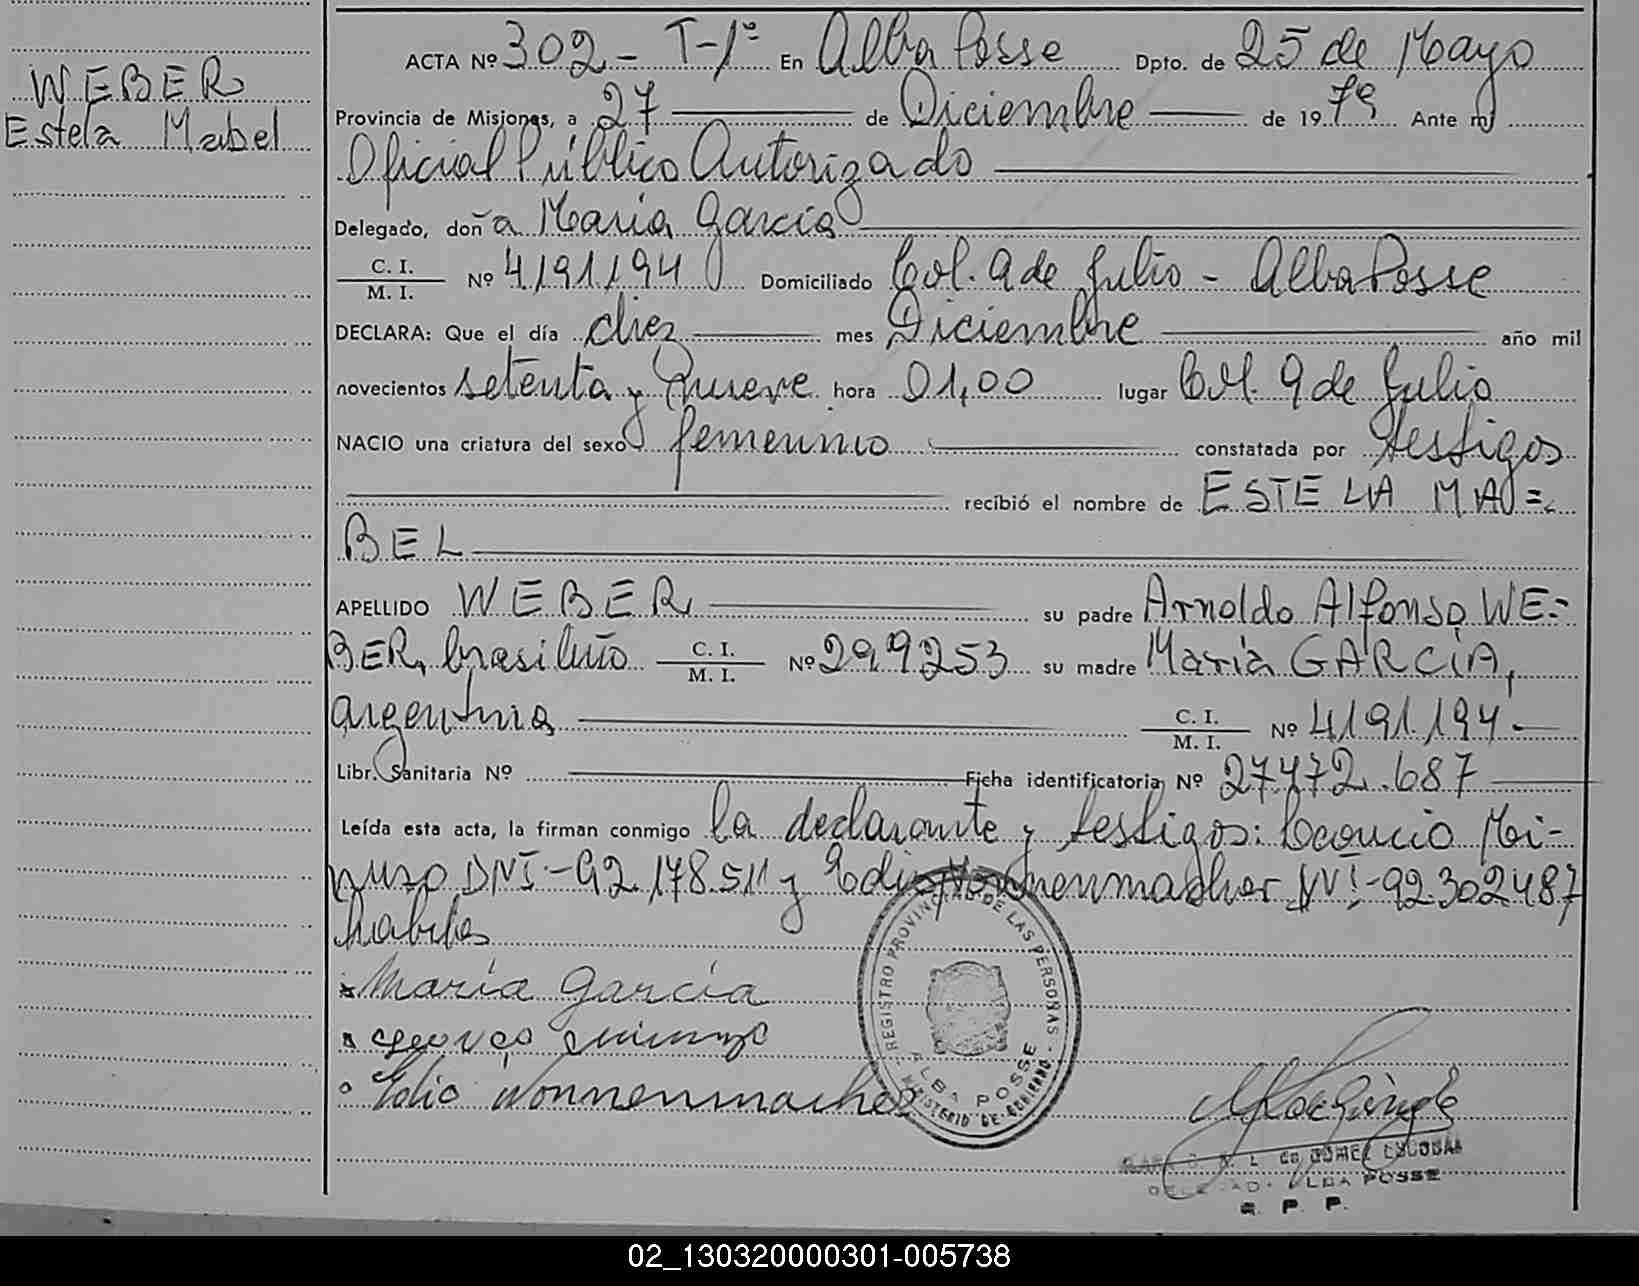 WEBER
Estela Mabel
ACTA Nº 302 - T-1º En Alba Posse Dpto. de 25 de Mayo
Provincia de Misiones, a 27 de Diciembre de 1979 Ante mí
Oficial Público Autorizado
Delegado, doña María García
C. I. / M. I. Nº 4191194 Domiciliado Col. 9 de Julio - Alba Posse
DECLARA: Que el día diez mes Diciembre año mil
novecientos setenta y nueve hora 01,00 lugar Col. 9 de Julio
NACIO una criatura del sexo femenino constatada por testigos
recibió el nombre de ESTELA MA=
BEL
APELLIDO WEBER su padre Arnoldo Alfonso WE=
BER, brasileño C. I. / M. I. Nº 299253 su madre María GARCÍA,
argentina C. I. / M. I. Nº 4191.194-
Libr. Sanitaria Nº Ficha identificatoria Nº 27.472.687
Leída esta acta, la firman conmigo la declarante y testigos:
DNI-92.178.511 y Edio Wonnenmacher DNI-92.302487
habiles
María García
Edio Wonnenmacher
REGISTRO PROVINCIAL DE LAS PERSONAS
ALBA POSSE
MINISTERIO DE GOBIERNO
de GOMEZ ESCOBAR
ALBA POSSE
R. P. P.
02_130320000301-005738